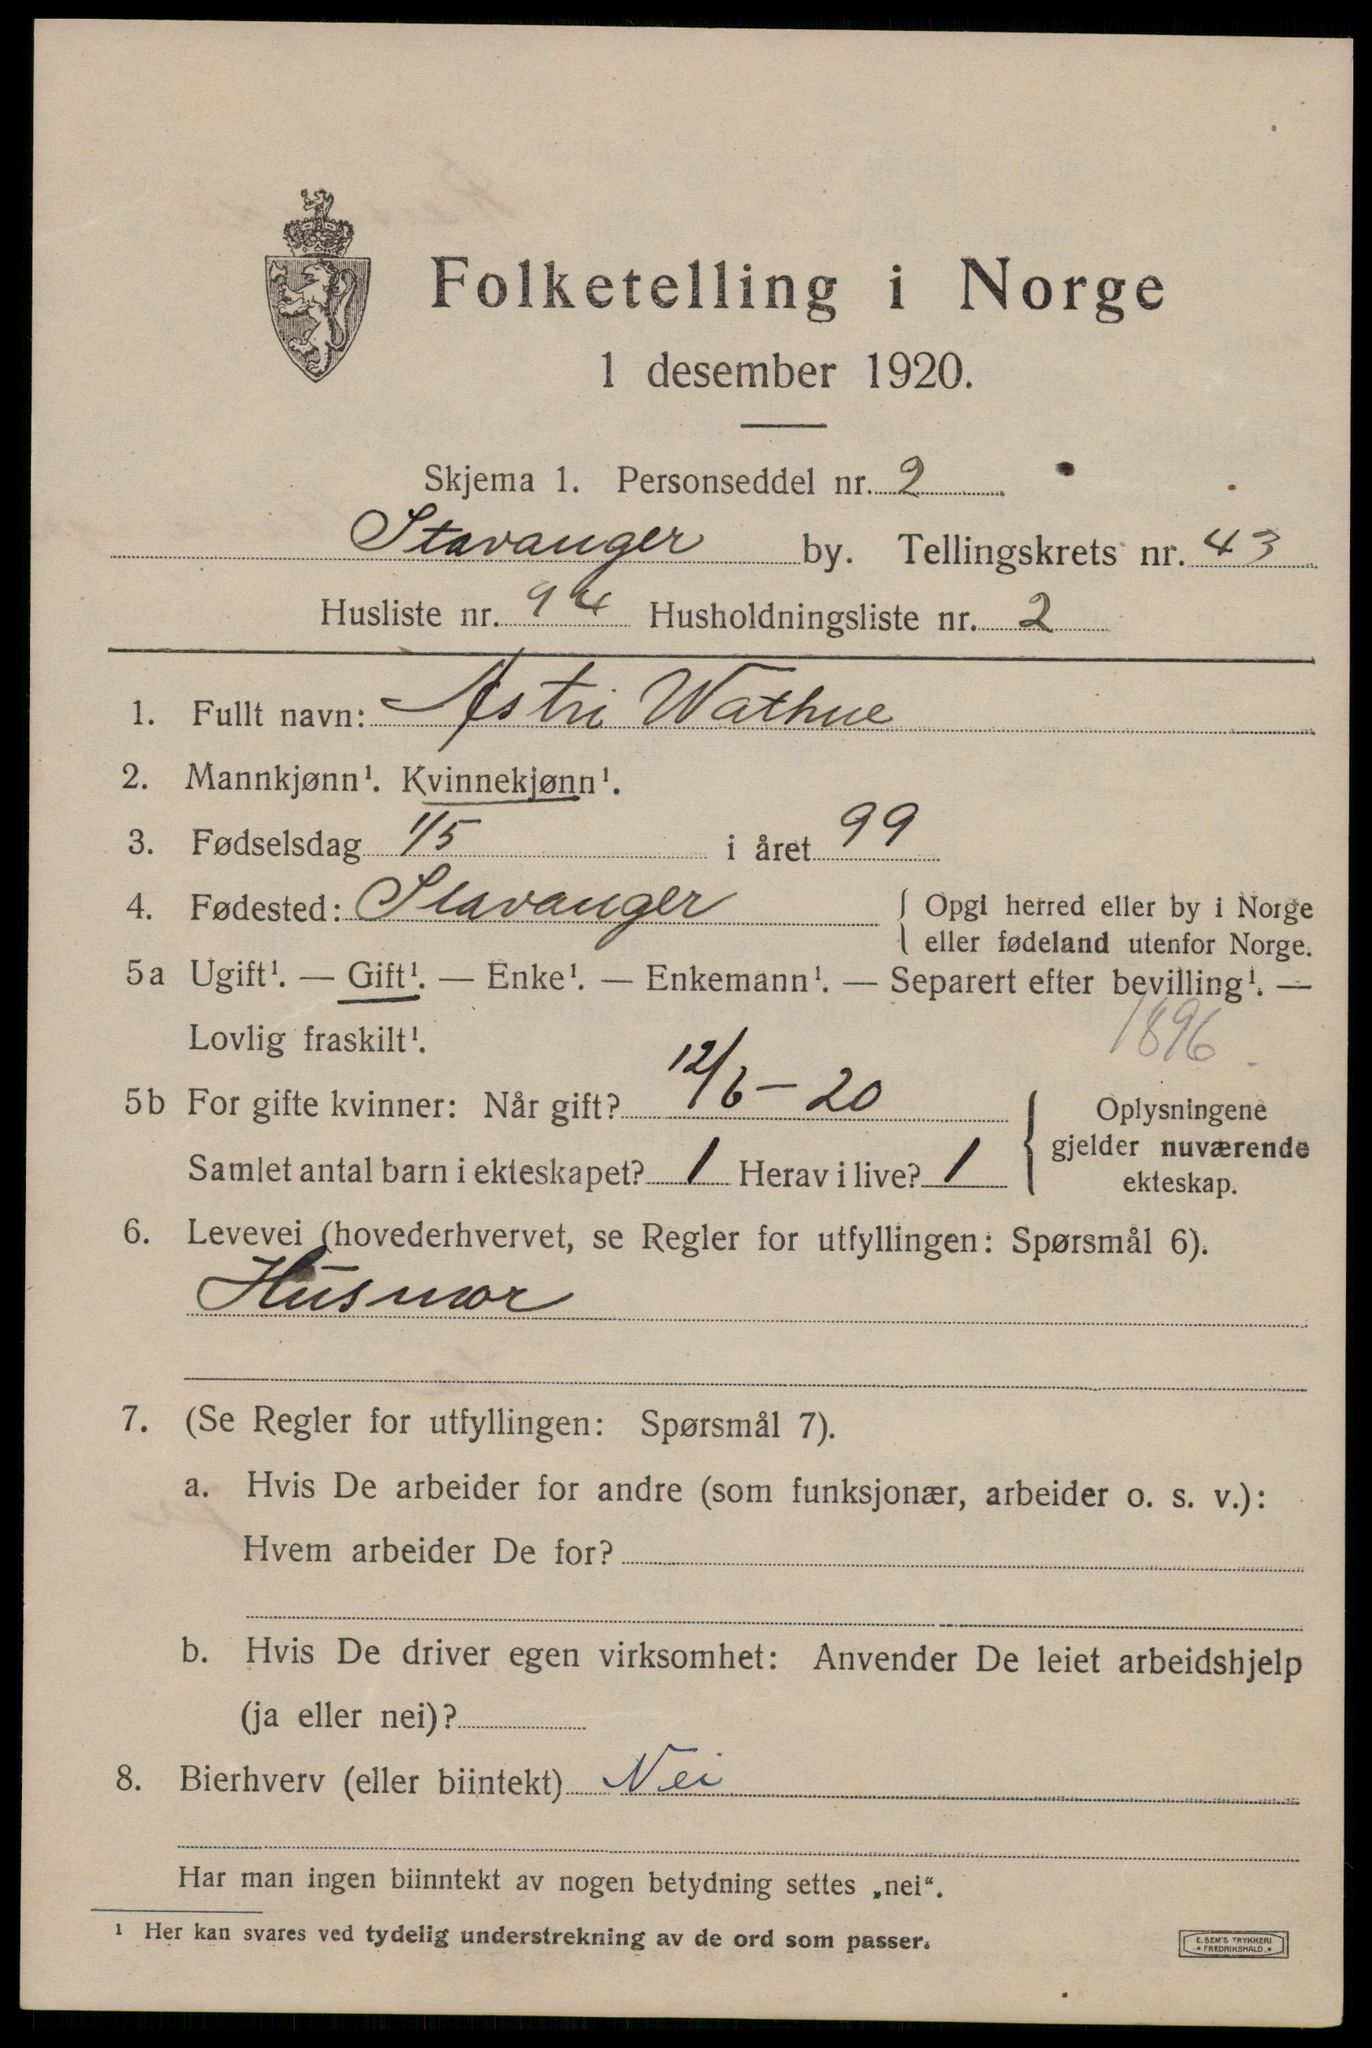 Folketelling i Norge
1 desember 1920.
Skjema 1. Personseddel nr. 2
Stavanger by. Tellingskrets nr. 43
Husliste nr. 94 Husholdningsliste nr. 2
1. Fullt navn: Astri Wathne
2. Mannkjønn¹. Kvinnekjønn¹.
3. Fødselsdag 1/5 i året 99
4. Fødested: Stavanger { Opgi herred eller by i Norge
eller fødeland utenfor Norge.
5a Ugift¹. — Gift¹. — Enke¹. — Enkemann¹. — Separert efter bevilling¹. —
Lovlig fraskilt¹. 1896
5b For gifte kvinner: Når gift? 12/6 – 20
Samlet antal barn i ekteskapet? 1 Herav i live? 1
{ Oplysningene
gjelder nuværende
ekteskap.
6. Levevei (hovederhvervet, se Regler for utfyllingen: Spørsmål 6).
Husmor
7. (Se Regler for utfyllingen: Spørsmål 7).
a. Hvis De arbeider for andre (som funksjonær, arbeider o. s. v.):
Hvem arbeider De for?
b. Hvis De driver egen virksomhet: Anvender De leiet arbeidshjelp
(ja eller nei)?
8. Bierhverv (eller biintekt) Nei
Har man ingen biinntekt av nogen betydning settes „nei“.
¹ Her kan svares ved tydelig understrekning av de ord som passer.
E. SEM'S TRYKKERI
FREDRIKSHALD